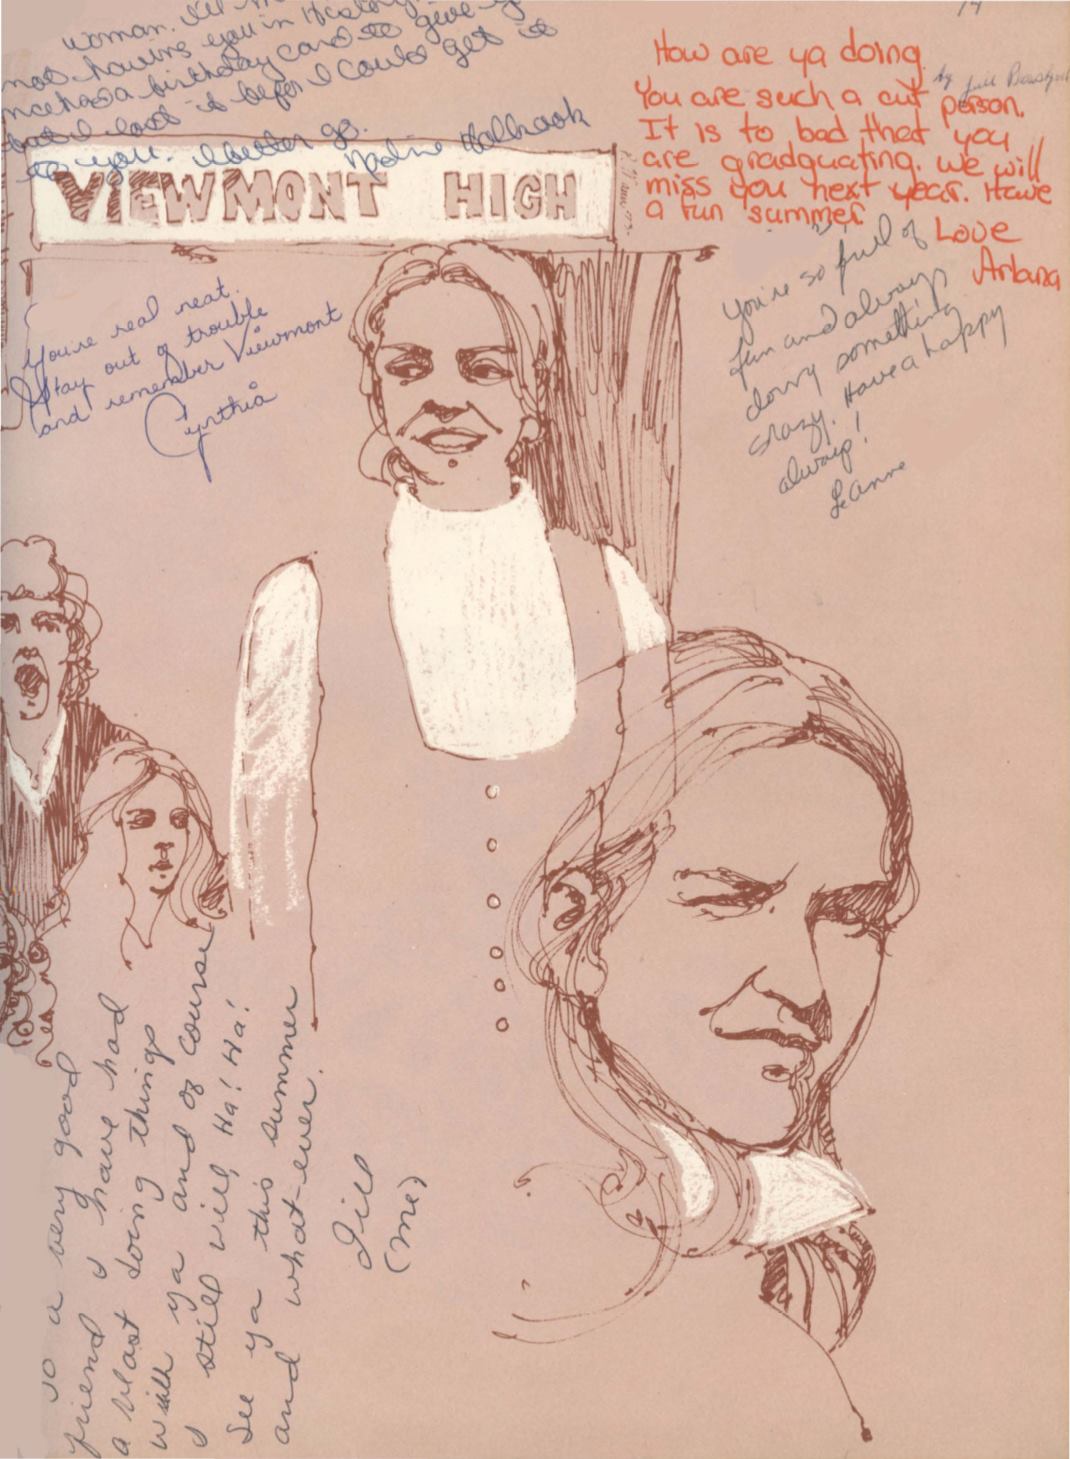 woman.
not having you in History.
a birthday card to give
but I lost it before I could get it
to you. I better go.
Nadine Halbrook
VIEWMONT HIGH
How are ya doing
You are such a cut person.
It is to bad that you
are gradguating. we will
miss you next year. Have
a fun summer
Love
Arlana
by Jill
You're real neat.
Stay out of trouble
and remember Viewmont
Cynthia
You're so full of
fun and always
doing something
crazy. Have a happy
always!
LeAnne
To a very good
friend I have had
a blast doing things
with ya and of course
I still will Ha! Ha!
See ya this summer
and what-ever.
Jill
(me)